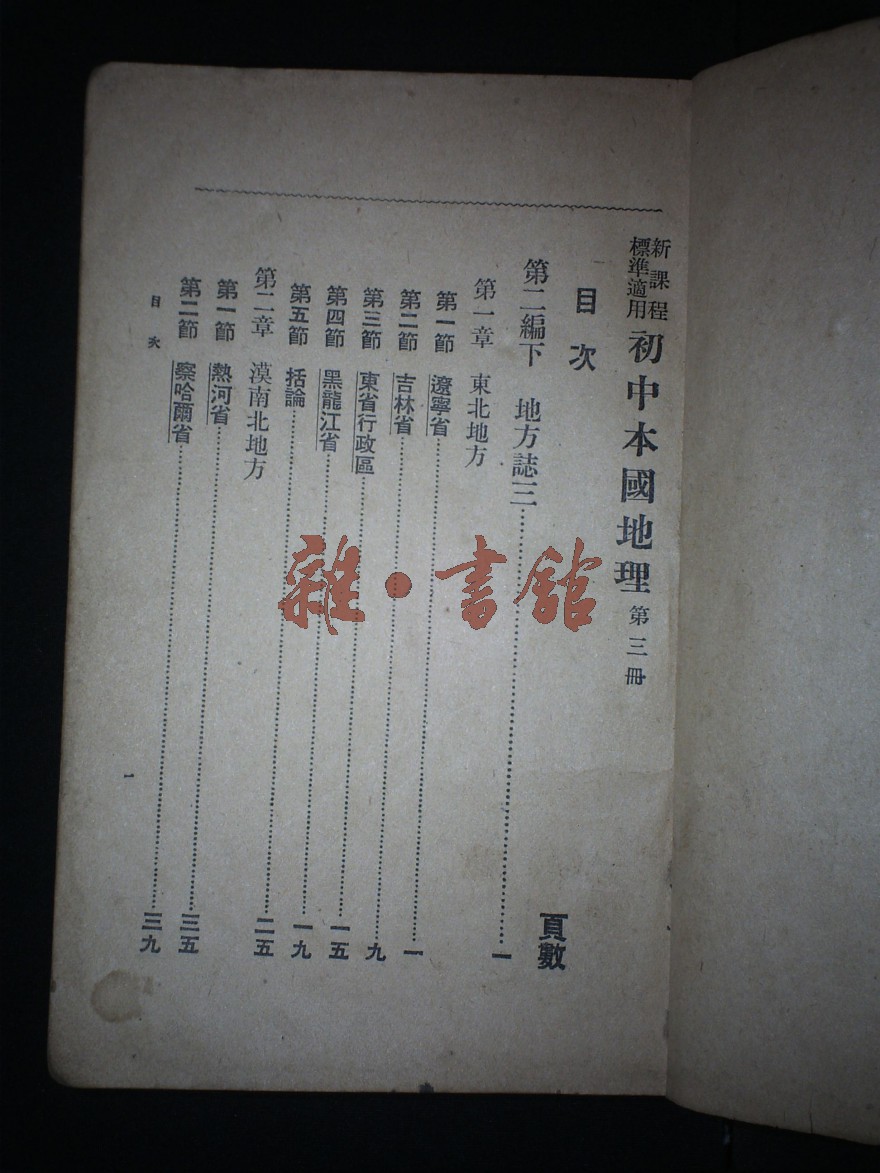 新課程
標準適用
初中本國地理 第三冊
目次
頁數
第二編下 地方誌三……一
第一章 東北地方
第一節 遼寧省……一
第二節 吉林省……九
第三節 東省行政區……一五
第四節 黑龍江省……一九
第五節 括論……二五
第二章 漠南北地方
第一節 熱河省……三五
第二節 察哈爾省……三九
目次
一
雜·書館